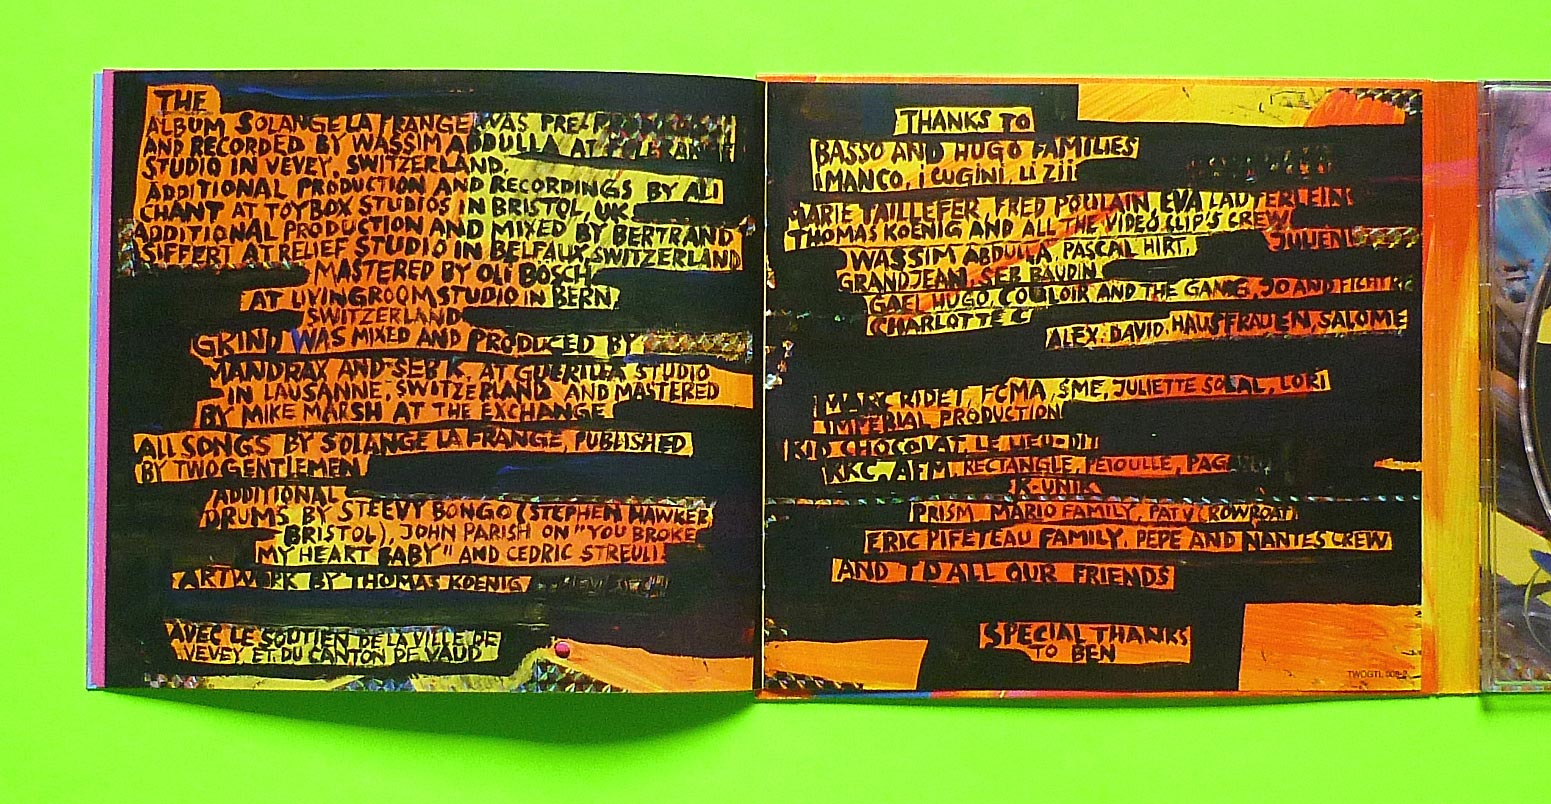 THE
ALBUM SOLANGE LA FRANGE WAS PRE-
AND RECORDED BY WASSIM ABDULLA AT
STUDIO IN VEVEY, SWITZERLAND.
ADDITIONAL PRODUCTION AND RECORDINGS BY ALI
CHANT AT TOYBOX STUDIOS IN BRISTOL, UK
ADDITIONAL PRODUCTION AND MIXED BY BERTRAND
SIFFERT AT RELIEF STUDIO IN BELFAUX, SWITZERLAND
MASTERED BY OLI BOSCH
AT LIVINGROOM STUDIO IN BERN,
SWITZERLAND
GKIND WAS MIXED AND PRODUCED BY
MANDRAX AND SEB K. AT GUERILLA STUDIO
IN LAUSANNE, SWITZERLAND AND MASTERED
BY MIKE MARSH AT THE EXCHANGE
ALL SONGS BY SOLANGE LA FRANGE, PUBLISHED
BY TWOGENTLEMEN
ADDITIONAL
DRUMS BY STEEVY BONGO (STEPHEN HAWKER
BRISTOL), JOHN PARISH ON "YOU BROKE
MY HEART BABY" AND CEDRIC STREULI.
ARTWORK BY THOMAS KOENIG
AVEC LE SOUTIEN DE LA VILLE DE
VEVEY ET DU CANTON DE VAUD
THANKS TO
BASSO AND HUGO FAMILIES
I MANCO, I CUGINI, LI ZII
MARIE TAILLEFER, FRED POULAIN, EVA LAUTERLEIN
THOMAS KOENIG AND ALL THE VIDEO CLIP'S CREW
WASSIM ABDULLA, PASCAL HIRT, JULIEN
GRANDJEAN, SEB BAUDIN
GAEL HUGO, COULOIR AND THE GANG, JO AND
CHARLOTTE C
ALEX.DAVID.HAUSFRAUEN, SALOME
MARC RIDET, FCMA, SME, JULIETTE SOLAL, LORI
IMPERIAL PRODUCTION
KID CHOCOLAT, LE LIEU-DIT
KKC, AFM, RECTANGLE, PETOULLE,
K-UNIK
PRISM MARIO FAMILY, PAT V
ERIC PIFETEAU FAMILY, PEPE AND NANTES CREW
AND TO ALL OUR FRIENDS
SPECIAL THANKS
TO BEN